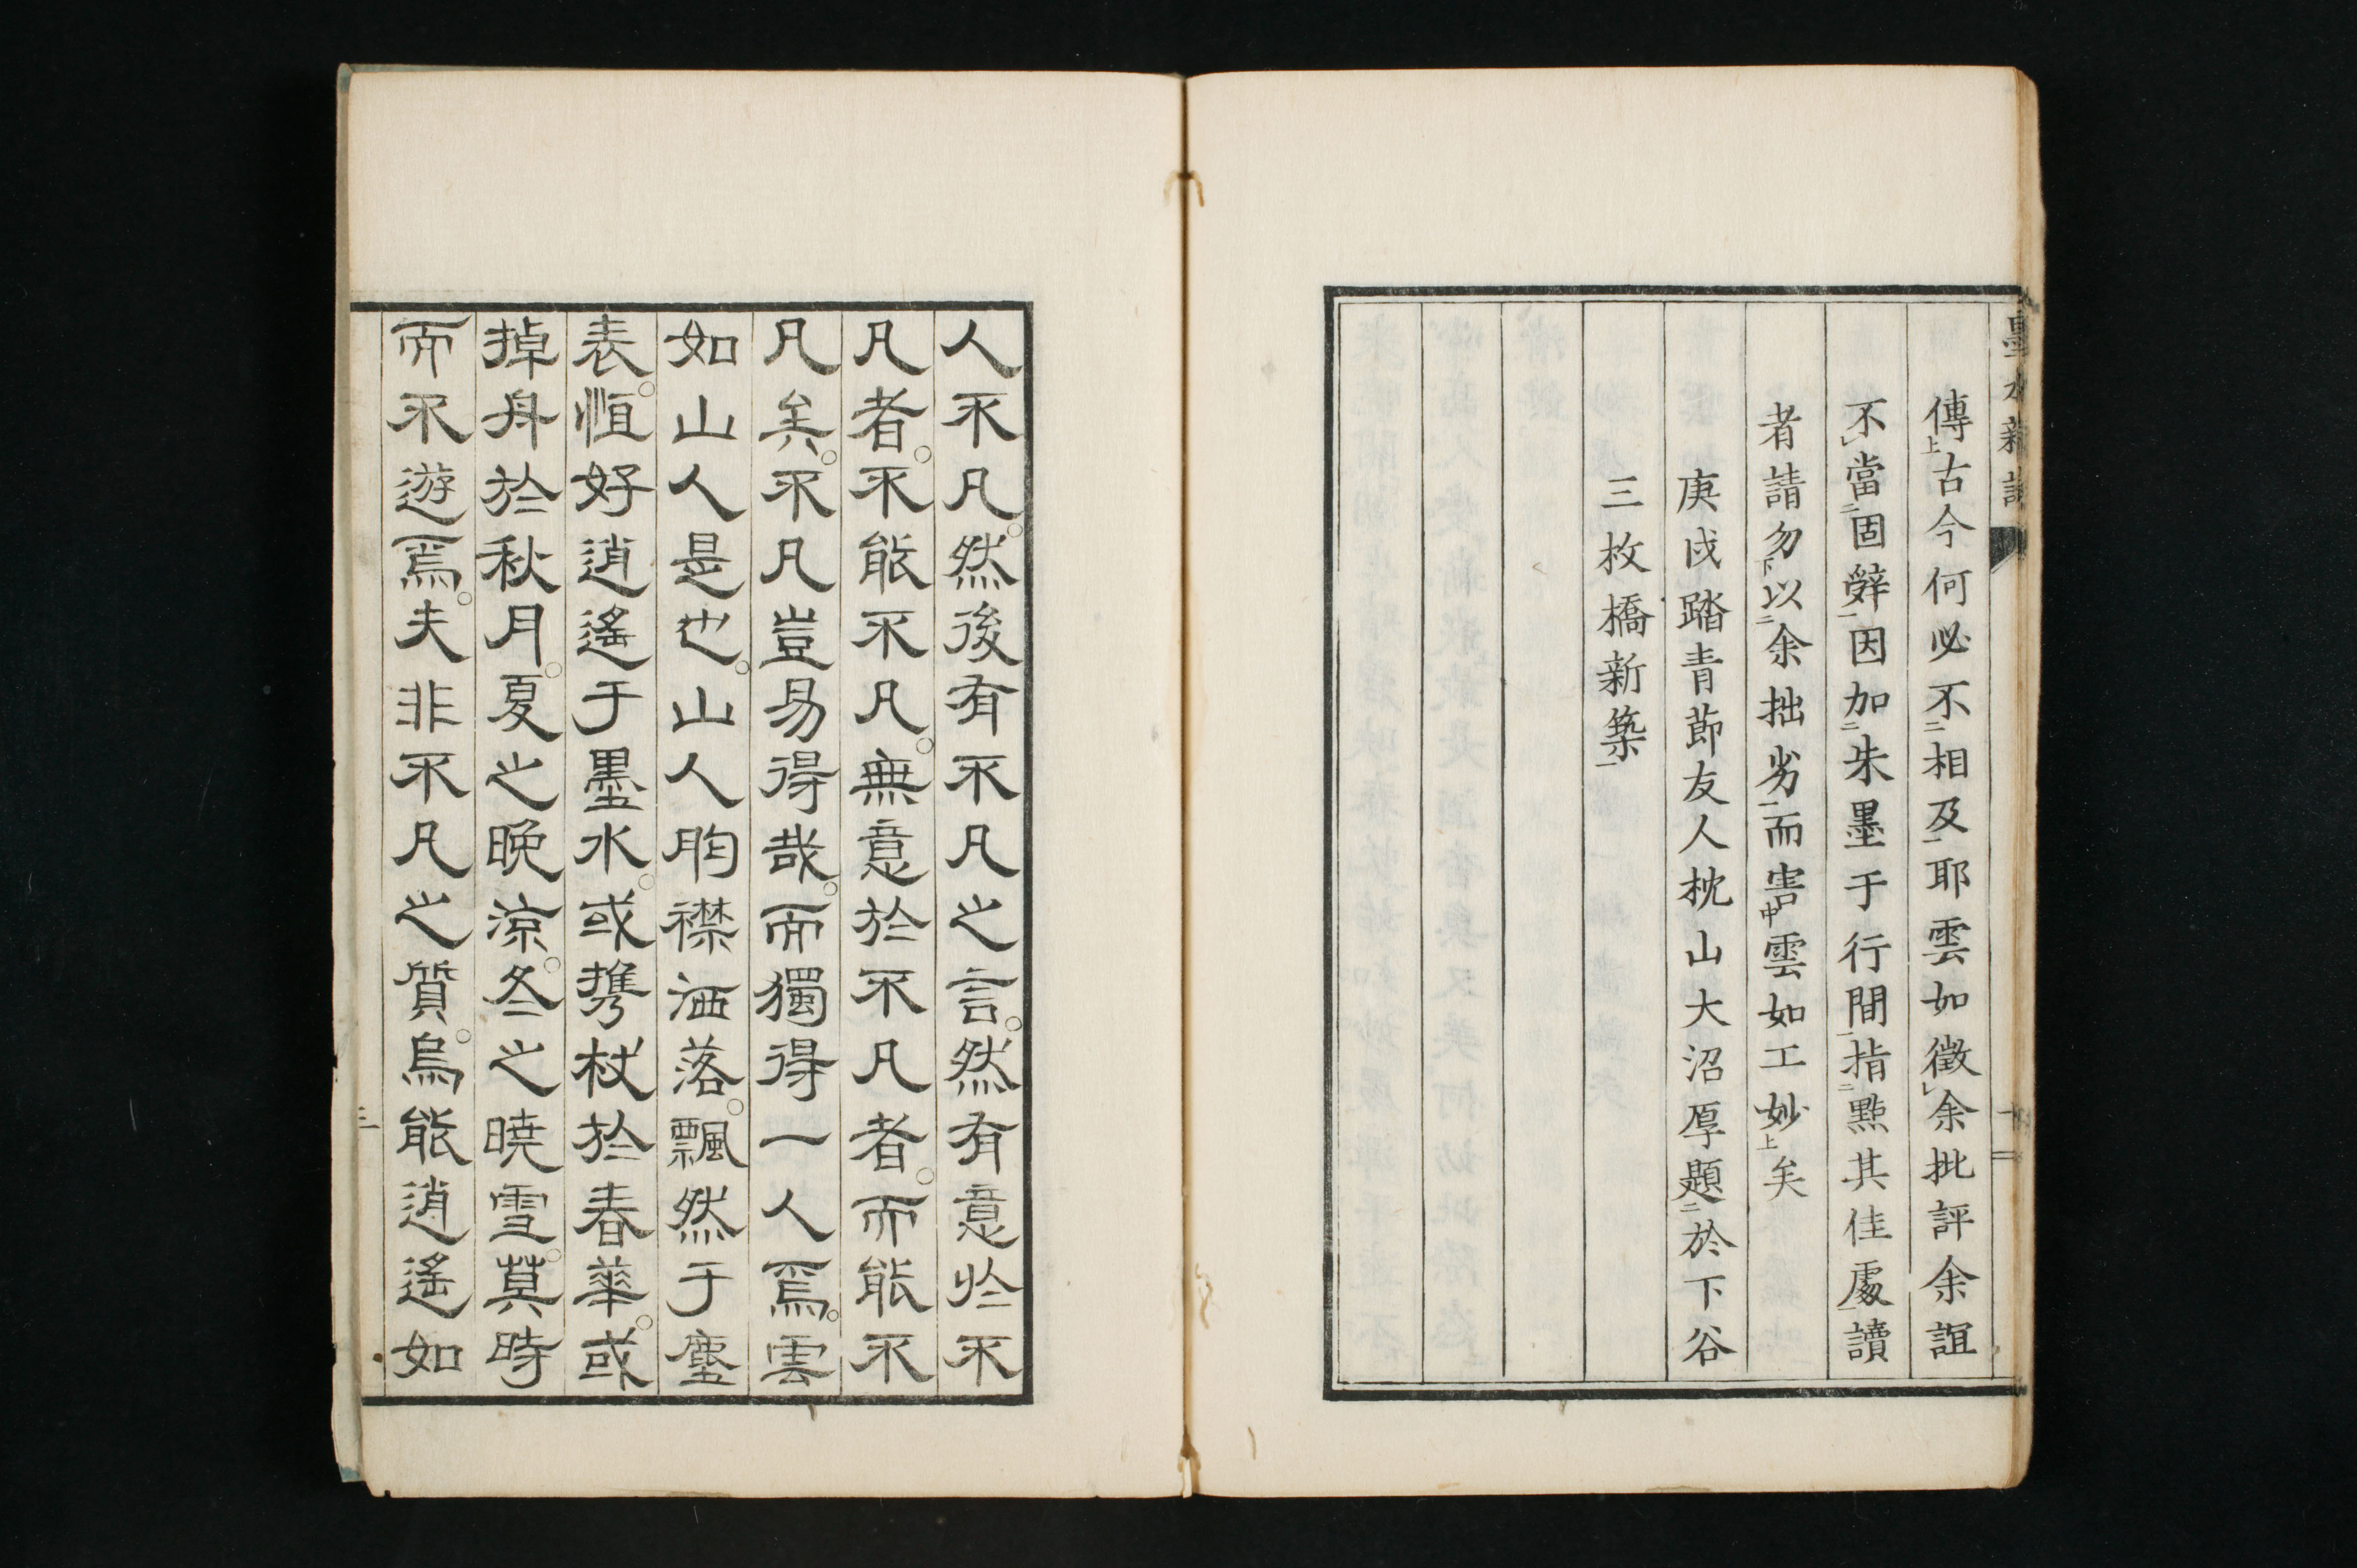 傳上古今何必不二相及一耶雲如徵レ余批評余誼
不レ當二固辭一因加二朱墨于行間一指二㸃其佳處一讀
者請勿下以二余拙劣一而害中雲如工妙上矣
庚戌踏青節友人枕山大沼厚題二於下谷
三枚橋新築一
人不凡。然後有不凡之言。然有意於不
凡者。不能不凡。無意於不凡者。而能不
凡矣。不凡豈易得哉。而獨得一人焉。雲
如山人是也。山人胸襟洒落。飄然于塵
表。恒好逍遙于墨水。或携杖於春華。或
掉舟於秋月。夏之晚涼。冬之曉雪。莫時
而不遊焉。夫非不凡之質。烏能逍遙如
三